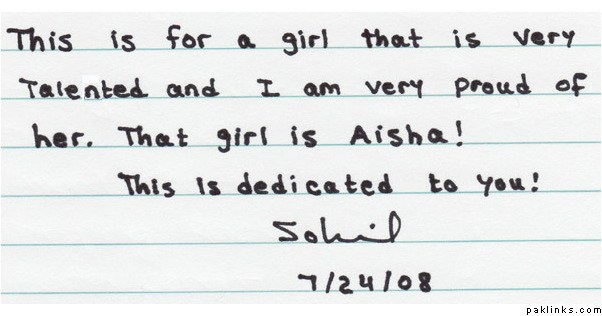 This is for a girl that is very
Talented and I am very proud of
her. That girl is Aisha!
This is dedicated to you!
Sohil
7/24/08
paklinks.com